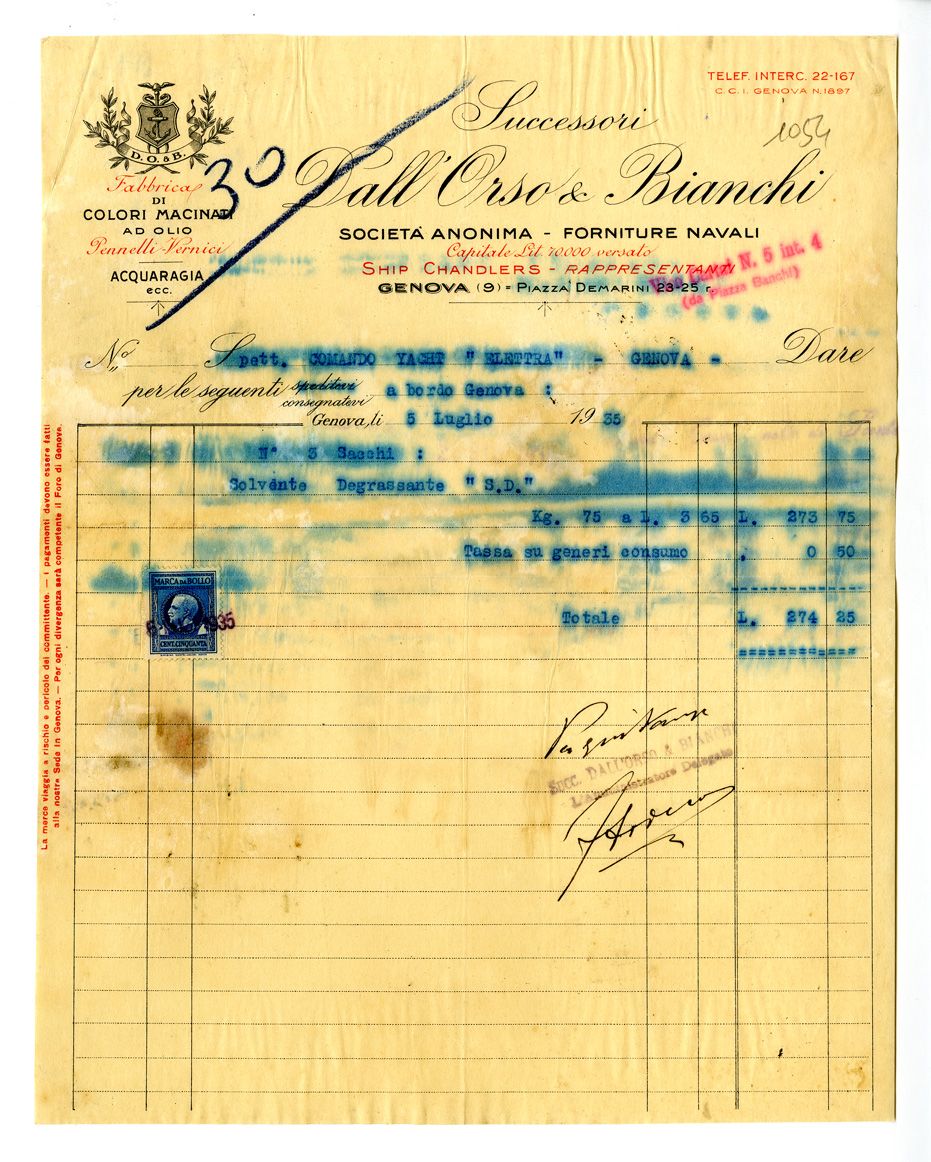 TELEF. INTERC. 22-167
C. C. I. GENOVA N. 1897
1054
30
D. O. & B.
Fabbrica
DI
COLORI MACINATI
AD OLIO
Pennelli-Vernici
ACQUARAGIA
ecc.
Successori
Dall'Orso & Bianchi
SOCIETÀ ANONIMA - FORNITURE NAVALI
Capitale Lit. 70.000 versato
SHIP CHANDLERS - RAPPRESENTANTI
GENOVA (9) = PIAZZA DEMARINI 23-25 r.
N. 5 int. 4
(da Piazza Banchi)
No Spett. COMANDO YACHT "ELETTRA" - GENOVA - Dare
per le seguenti speditevi consegnatevi a bordo Genova :
Genova, li 5 Luglio 1935
N° 3 Sacchi :
Solvente Degrassante "S.D."
Kg. 75 a L. 3 65 L. 273 75
Tassa su generi consumo " 0 50
Totale L. 274 25
MARCA DA BOLLO
935
CENT. CINQUANTA
Per quietanza
SUCC. DALL'ORSO & BIANCHI
L'Amministratore Delegato
La merce viaggia a rischio e pericolo del committente. — I pagamenti devono essere fatti
alla nostra Sede in Genova. — Per ogni divergenza sarà competente il Foro di Genova.